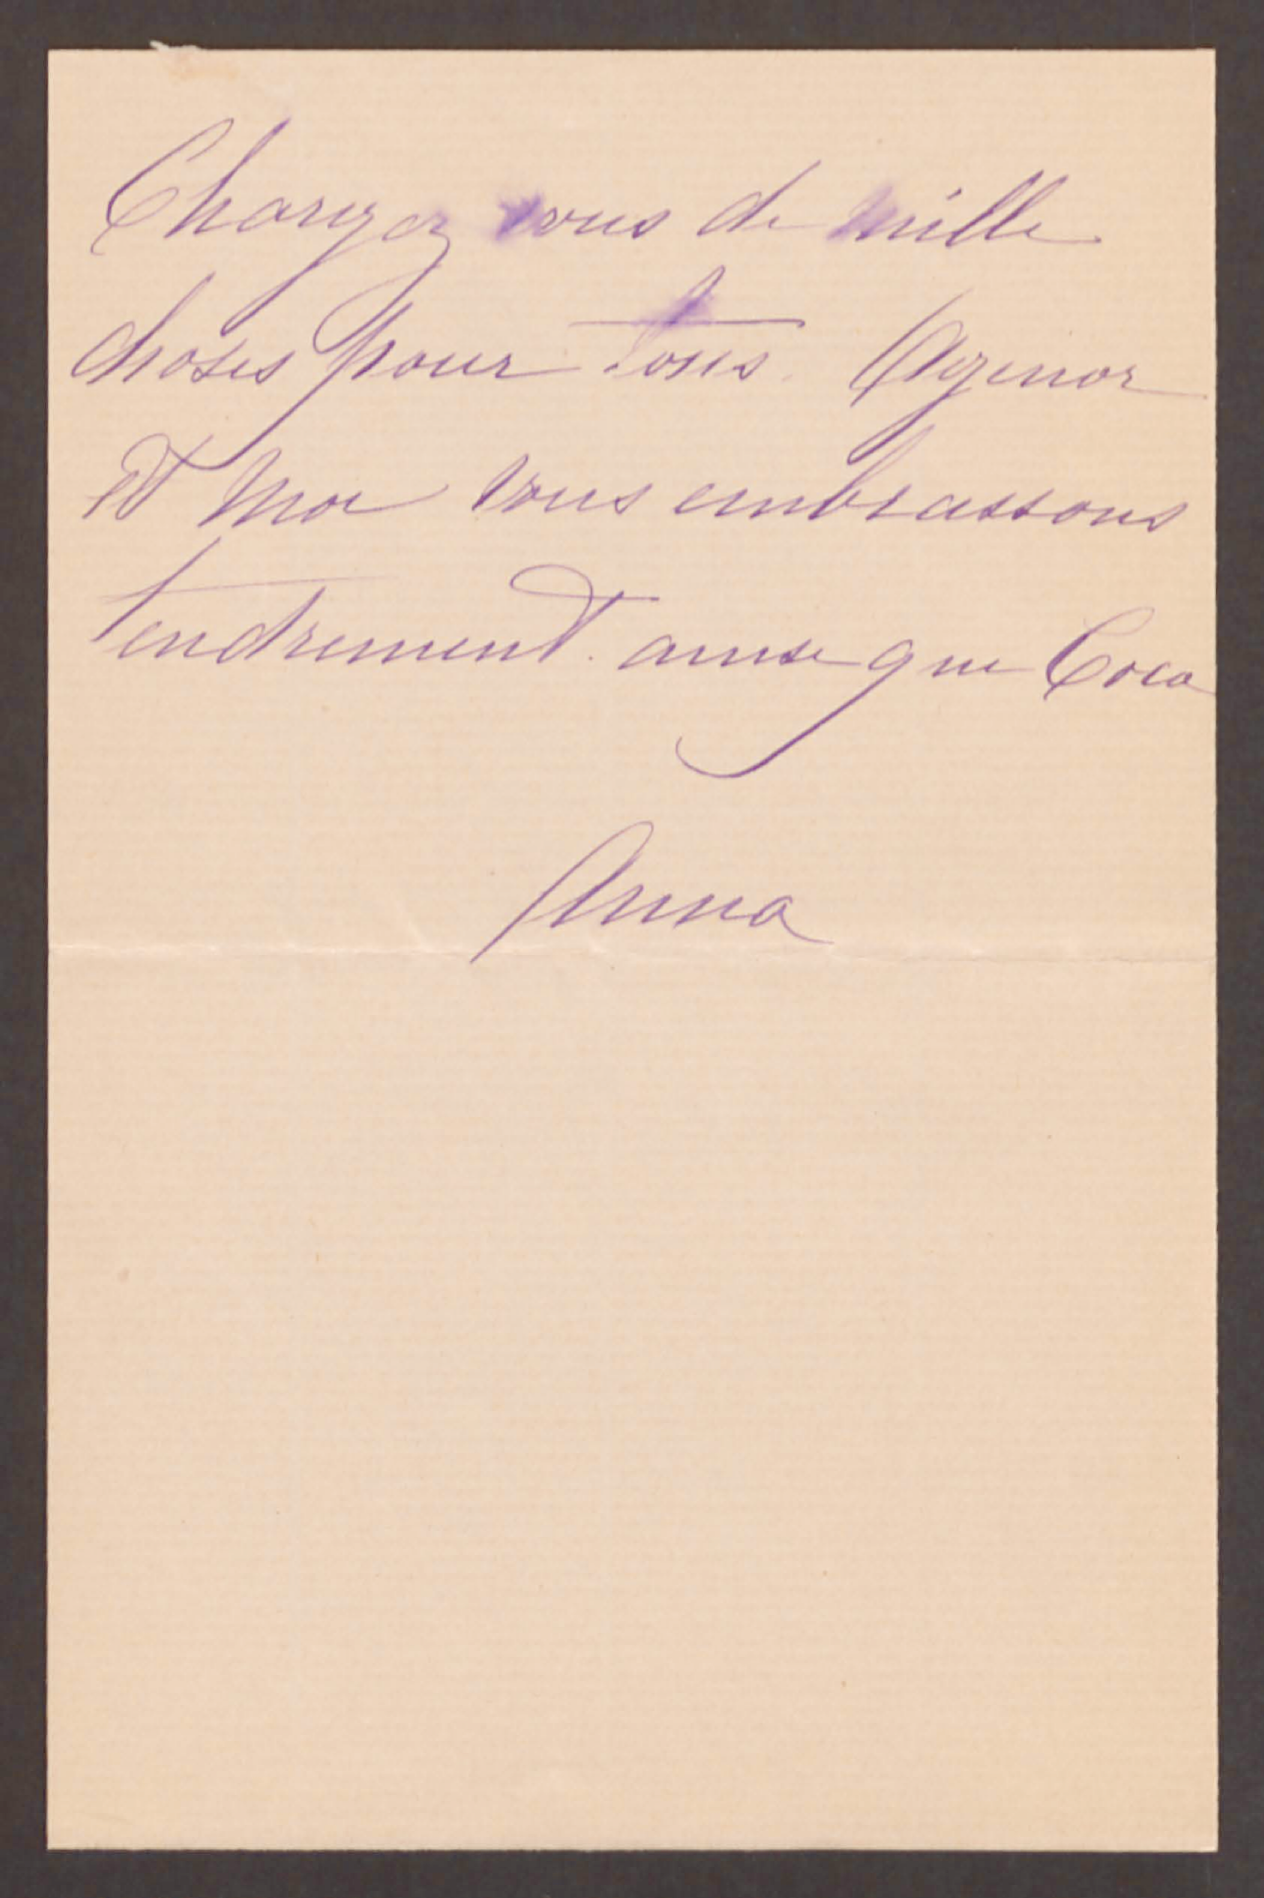 Chargez vous de mille
choses pour tous. Agenor
et moi vous embrassons
tendrement. ainsi que Coco
Anna